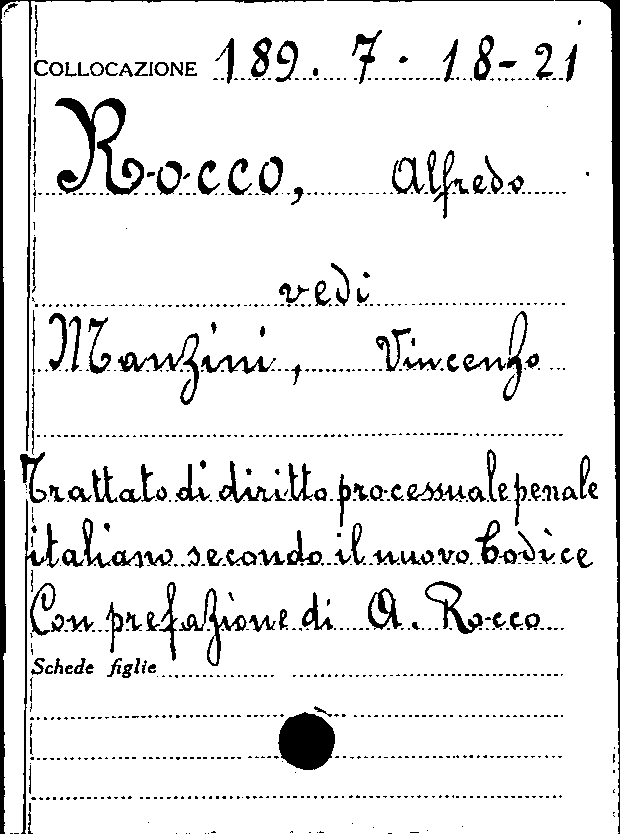 COLLOCAZIONE 189. 7. 18-21
Rocco, Alfredo
vedi
Manzini, Vincenzo
Trattato di diritto processuale penale
italiano secondo il nuovo Codice
Con prefazione di A. Rocco
Schede figlie